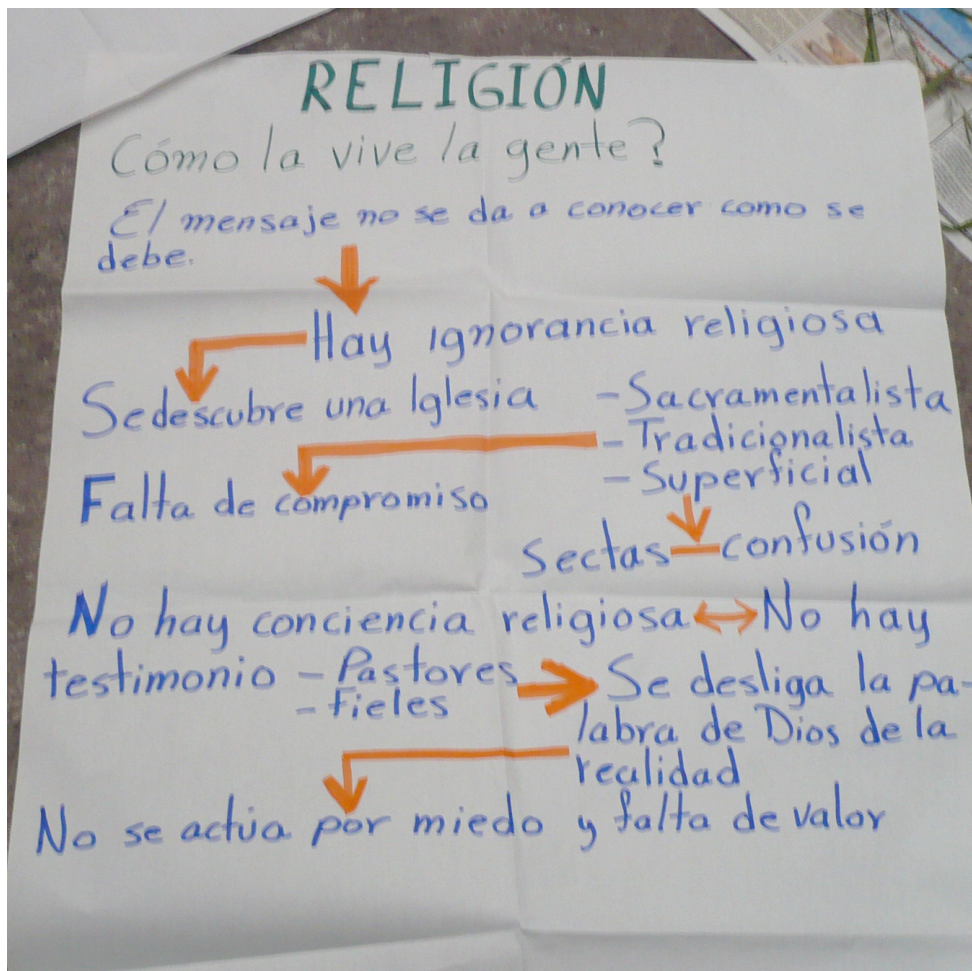 RELIGIÓN
Cómo la vive la gente?
El mensaje no se da a conocer como se
debe.
Hay ignorancia religiosa
Se descubre una Iglesia - Sacramentalista
- Tradicionalista
- Superficial
Falta de compromiso
Sectas - confusión
No hay conciencia religiosa ↔ No hay
testimonio - Pastores
- Fieles
Se desliga la pa-
labra de Dios de la
realidad
No se actúa por miedo y falta de valor